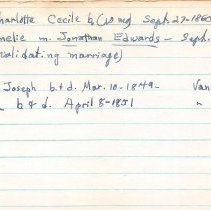 harlotte Cecile b, (10 mo) Sept. 27-1860
melie m. Jonathan Edwards - Sept.
validating marriage)
Joseph b+d. Mar. 10-1849- Van
b+d. April 8-1851 "